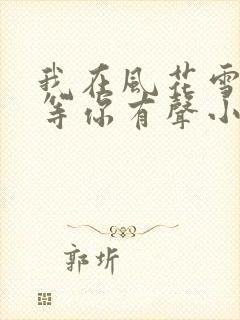 我在風花雪
等你有聲小
郭圻